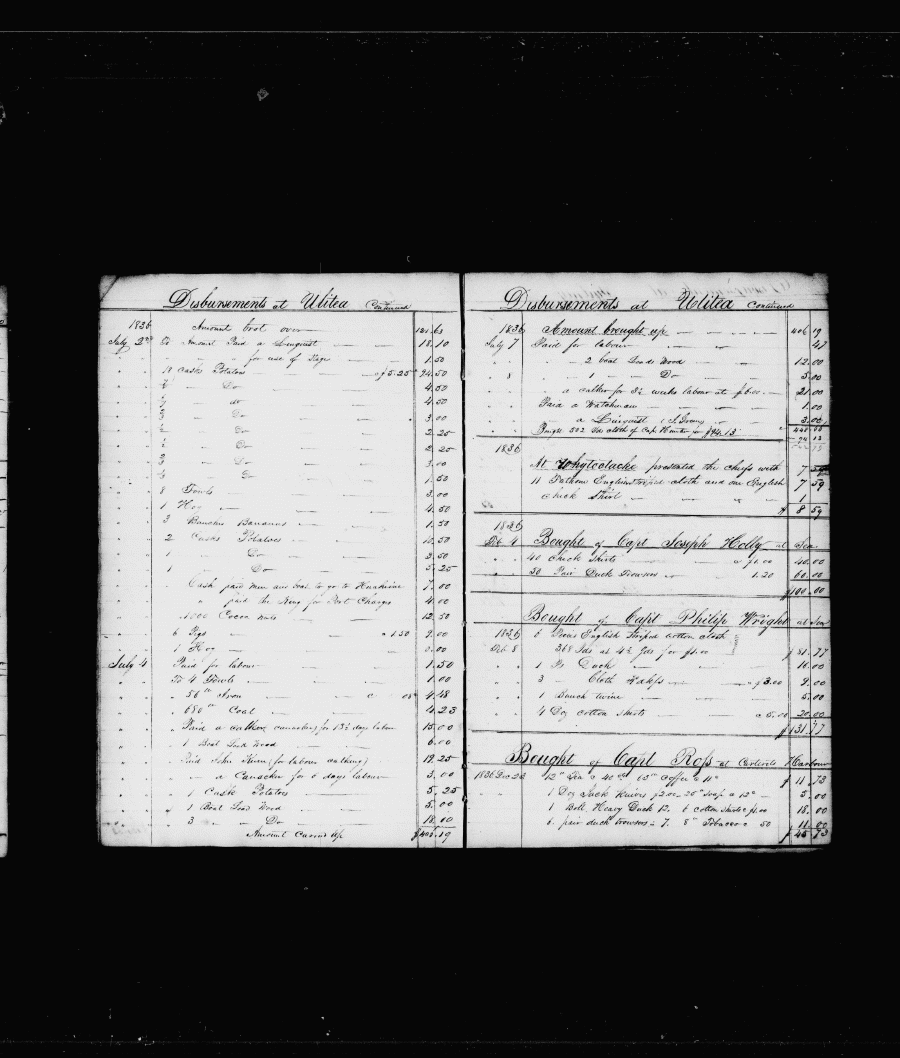 Disbursements at Ulitea Continued
1836 Amount brot over 121.61
July 2nd To Amount Paid a Linguist 18.10
" " for use of 1.50
18 Casks Potatoes @ $5.25 94.50
Do 4.50
do 4.50
Do 3.00
Do 2.25
Do 2.25
Do 3.00
Do 1.50
8 Fowls 3.00
1 Hog 4.50
3 Bunches Bananas 1.50
2 Casks Potatoes 10.50
1 " Do 2.50
1 Do 5.25
Cash paid men and boat to go to Huahine 7.00
" paid the King for Port Charges 4.00
1000 Cocoa nuts 12.50
6 Pigs @ 1.50 9.00
1 Hog
July 4 Paid for labour 1.50
To 4 Fowls 1.00
56 lb Iron 08 4.48
680 lb Coal 4.23
Paid a calker for 13½ days labour 15.00
1 Boat Load Wood 6.00
Paid John (for labour calking) 19.25
" a for 6 days labour 3.00
1 Cask Potatoes 5.25
1 Boat Load Wood 5.00
3 " Do 18.00
Amount Carried Up $406.19
Disbursements at Ulitea Continued
1836 Amount brought up 406 19
July 7 Paid for labour 47
" " 2 boat Loads Wood 12.00
" 8 " 1 " Do 5.00
" " a calker for 3½ weeks labour at $6.00 21.00
" " Paid a Watchman 1.00
" " a Linguist 3.00
" " Bought 502 Yds cloth of Cap. Hunter for $94.13
94 13
1836
At Whytootacke presented the chiefs with 7 59
11 Fathom English striped cloth and one English 7 59
check Shirt 1
$ 8 59
1836
Feb. 4 Bought of Capt Joseph Holly at Sea
" " 40 check Shirts @ $1.00 40.00
" " 50 Pair Duck Trowsers 1.20 60.00
$100.00
Bought of Capt Philip Wright at Sea
1836 8 Pieces English Striped cotton cloth
Feb 8 368 Yds at 4½ Yds for $1.00 $81.77
" " 1 Ps Duck 16.00
" " 3 Cloth @ $3.00 9.00
" " 1 Bunch twine 5.00
" " 4 Doz cotton shirts @ 5.00 20.00
$131.77
Bought of Capt Ross at Carterets Harbour
1836 Dec 23 $ 11.73
" " 1 Doz Jack Knives $2.00 25 lb Soap @ 12c 5.00
1 Bolt Heavy Duck 12. 6 cotton shirts @ $1.00 18.00
6 pair duck trowsers 7. 8 lb Tobacco 50 11.00
$ 45 73